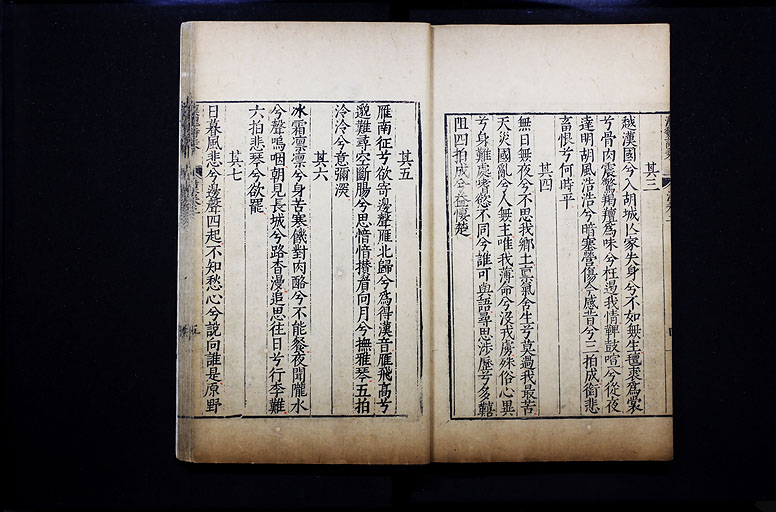 其三
越漢國兮入胡城亾家失身兮不如無生氊裘爲裳
兮骨肉震驚羯羶爲味兮枉遏我情鞞鼓喧兮從夜
達明胡風浩浩兮暗塞營傷今感昔兮三拍成銜悲
畜恨兮何時平
其四
無日無夜兮不思我鄉土稟氣含生兮莫過我最苦
天災國亂兮人無主唯我薄命兮沒戎虜殊俗心異
兮身難處嗜慾不同兮誰可與語尋思涉歷兮多囏
阻四拍成兮益悽楚
其五
雁南征兮欲寄邊聲雁北歸兮爲得漢音雁飛高兮
邈難尋空斷腸兮思愔愔攢眉向月兮撫雅琴五拍
泠泠兮意彌深
其六
冰霜凛凛兮身苦寒饑對肉酪兮不能餐夜聞隴水
兮聲嗚咽朝見長城兮路杳漫追思往日兮行李難
六拍悲琴兮欲罷
其七
日暮風悲兮邊聲四起不知愁心兮說向誰是原野